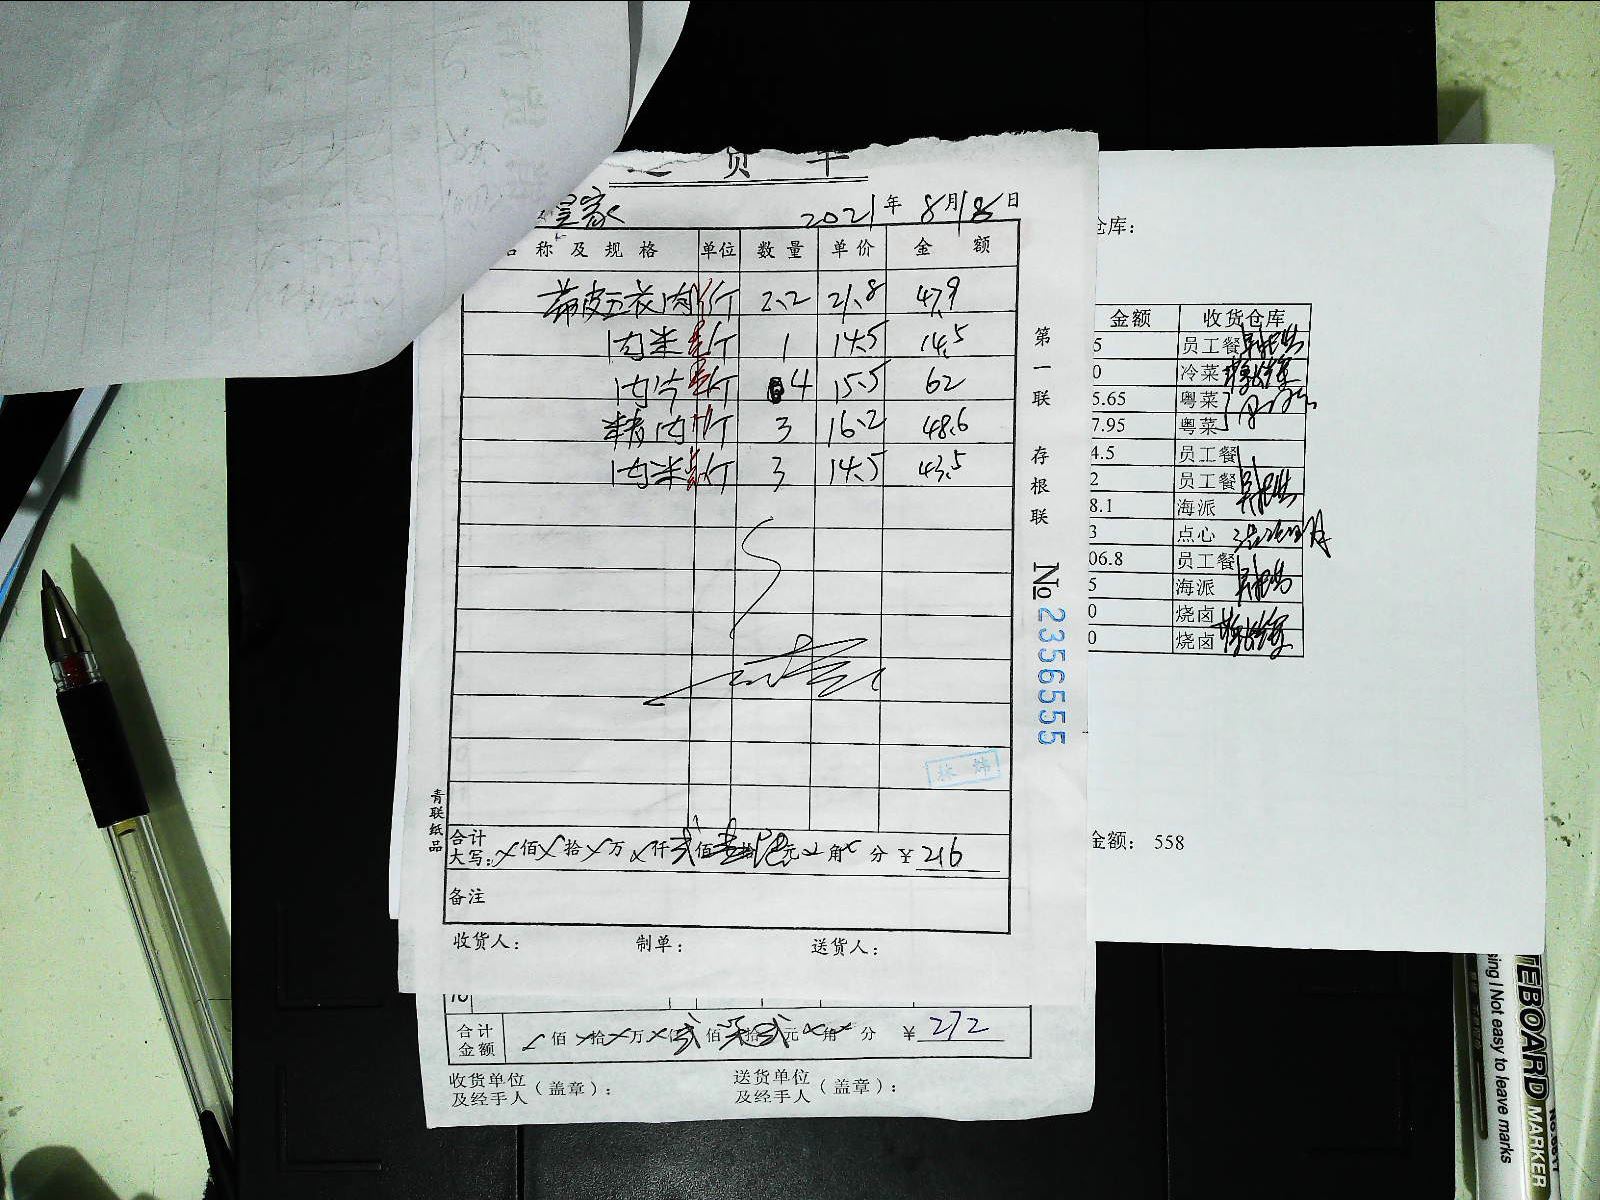 货单
皇家 2021年8月18日
名称及规格 单位 数量 单价 金额
带皮五花肉 斤 2.2 21.8 47.9
肉米 斤 1 14.5 14.5
肉片 斤 4 15.5 62
精肉 斤 3 16.2 48.6
肉米 斤 3 14.5 43.5
第一联 存根联
№2356555
青联纸品
合计
大写: 佰 拾 万 仟 贰佰壹拾 元 角 分 ¥ 216
备注
收货人: 制单: 送货人:
10
合计
金额 佰 拾 万 贰佰 拾贰元 角 分 ¥ 272
收货单位
及经手人(盖章):
送货单位
及经手人(盖章):
仓库:
金额 收货仓库
5 员工餐
0 冷菜
5.65 粤菜
7.95 粤菜
4.5 员工餐
2 员工餐
8.1 海派
3 点心
06.8 员工餐
5 海派
0 烧卤
0 烧卤
金额: 558
TEBOARD MARKER
sing! Not easy to leave marks